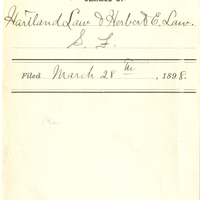 Hartland Law & Herbert E. Law.
S. F.
Filed March 28th, 1898.